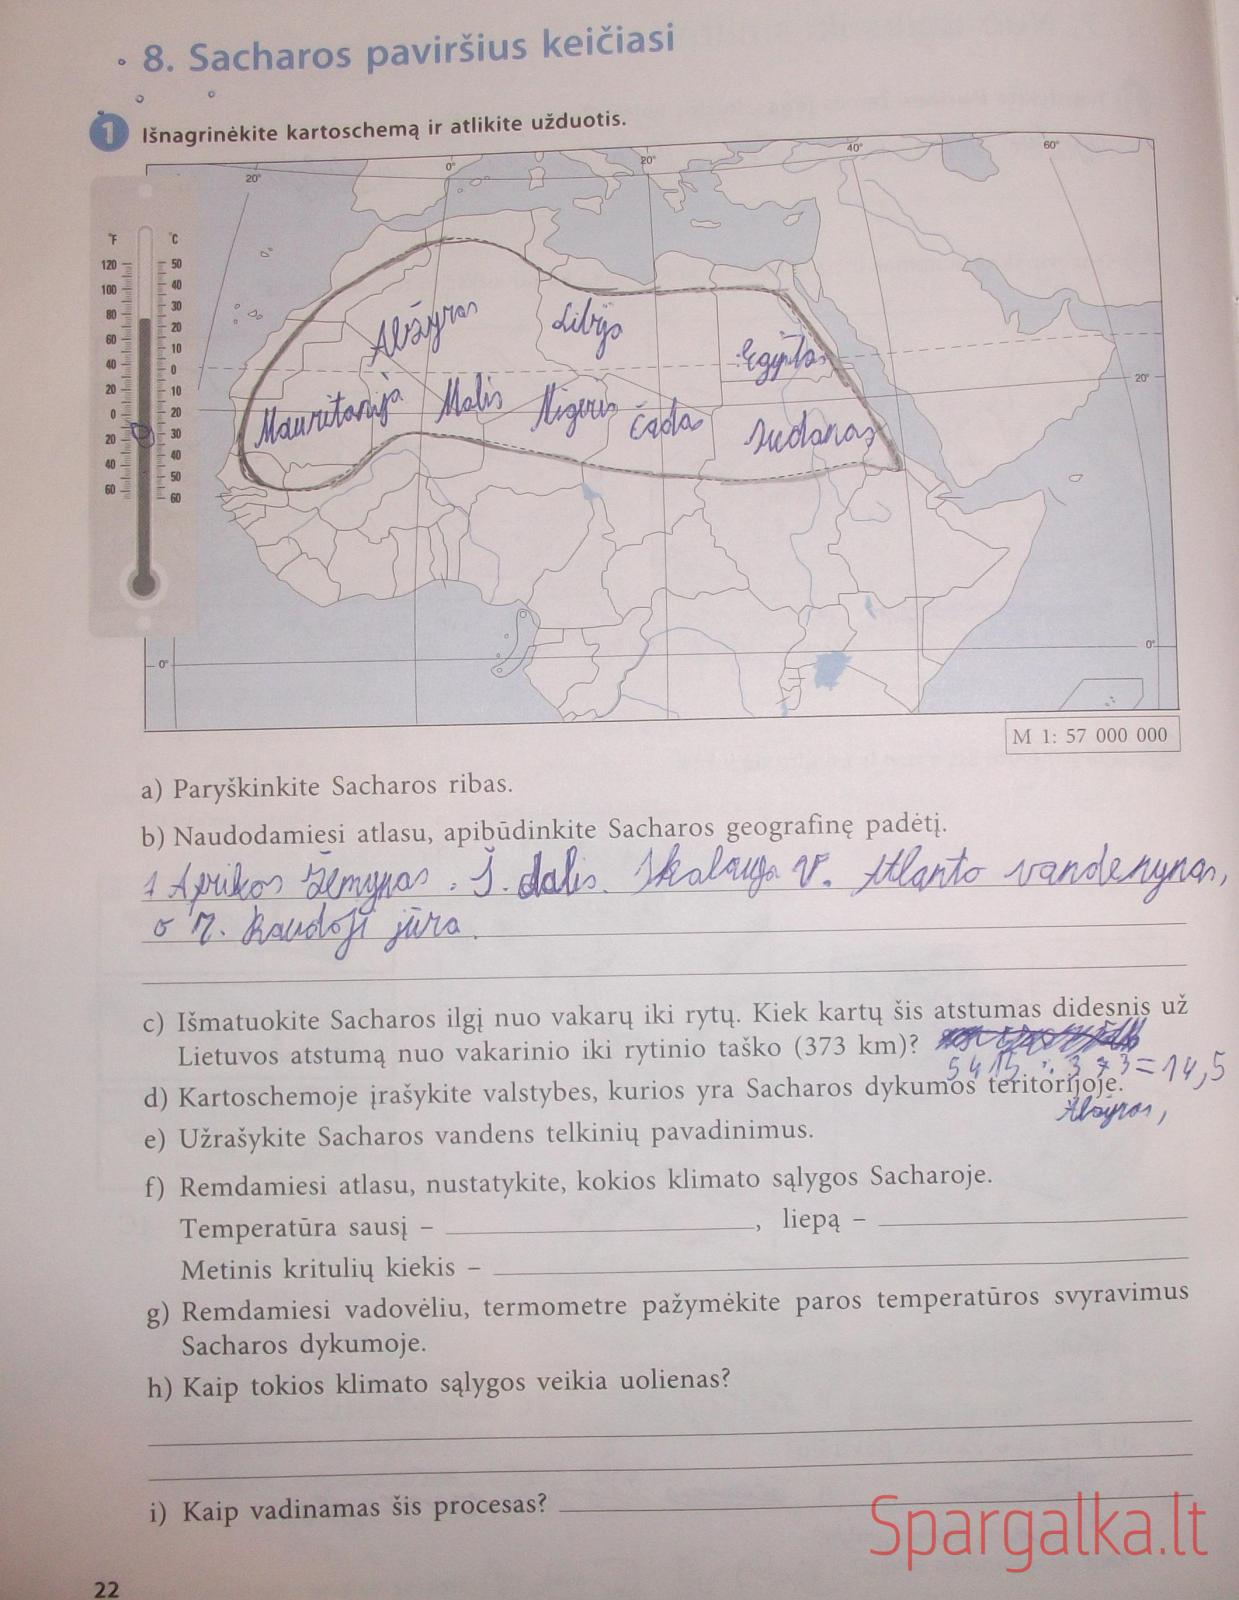 8. Sacharos paviršius keičiasi
1 Išnagrinėkite kartoschemą ir atlikite užduotis.
20° 0° 20° 40° 60°
°F °C
120 50
100 40
80 30
60 20
40 10
20 0
0 10
20 20
40 30
60 40
50
60
Alžyras Libija Egiptas
Mauritanija Malis Nigeris Čadas Sudanas
20°
0° 0°
M 1: 57 000 000
a) Paryškinkite Sacharos ribas.
b) Naudodamiesi atlasu, apibūdinkite Sacharos geografinę padėtį.
1 Afrikos žemynas. Š. dalis. Skalauja V. Atlanto vandenynas,
o R. Raudoji jūra.
c) Išmatuokite Sacharos ilgį nuo vakarų iki rytų. Kiek kartų šis atstumas didesnis už
Lietuvos atstumą nuo vakarinio iki rytinio taško (373 km)?
5415 : 373 = 14,5
d) Kartoschemoje įrašykite valstybes, kurios yra Sacharos dykumos teritorijoje.
Alžyras,
e) Užrašykite Sacharos vandens telkinių pavadinimus.
f) Remdamiesi atlasu, nustatykite, kokios klimato sąlygos Sacharoje.
Temperatūra sausį – , liepą –
Metinis kritulių kiekis –
g) Remdamiesi vadovėliu, termometre pažymėkite paros temperatūros svyravimus
Sacharos dykumoje.
h) Kaip tokios klimato sąlygos veikia uolienas?
i) Kaip vadinamas šis procesas?
Spargalka.lt
22